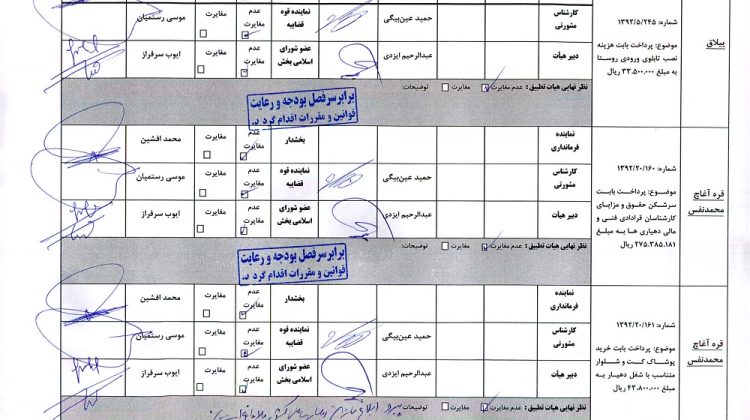 ییلاق
شماره: ۱۳۹۲/۵/۲۴۵
موضوع: پرداخت بابت هزینه
نصب تابلوی ورودی روستا
به مبلغ ۳۳.۵۰۰.۰۰۰ ریال
کارشناس مشورتی
حمید عین‌بیگی
نماینده قوه قضاییه
عدم مغایرت
مغایرت
موسی رستمیان
دبیر هیأت
عبدالرحیم ایزدی
عضو شورای اسلامی بخش
عدم مغایرت
مغایرت
ایوب سرفراز
نظر نهایی هیات تطبیق: عدم مغایرت مغایرت توضیحات:
برابر سرفصل بودجه و رعایت
قوانین و مقررات اقدام گردد.
قره آغاج
محمدنفس
شماره: ۱۳۹۲/۲۰/۱۶۰
موضوع: پرداخت بابت
سرشکن حقوق و مزایای
کارشناسان قرادادی فنی و
مالی دهیاری ها به مبلغ
۲۷۵.۳۸۵.۱۸۱ ریال
نماینده فرمانداری
بخشدار
عدم مغایرت
مغایرت
محمد افشین
کارشناس مشورتی
حمید عین‌بیگی
نماینده قوه قضاییه
عدم مغایرت
مغایرت
موسی رستمیان
دبیر هیأت
عبدالرحیم ایزدی
عضو شورای اسلامی بخش
عدم مغایرت
مغایرت
ایوب سرفراز
نظر نهایی هیات تطبیق: عدم مغایرت مغایرت توضیحات:
برابر سرفصل بودجه و رعایت
قوانین و مقررات اقدام گردد.
قره آغاج
محمدنفس
شماره: ۱۳۹۲/۲۰/۱۶۱
موضوع: پرداخت بابت خرید
پوشاک کت و شلوار
متناسب با شغل دهیار به
مبلغ ۴۳.۸۰۰.۰۰۰ ریال
نماینده فرمانداری
بخشدار
عدم مغایرت
مغایرت
محمد افشین
کارشناس مشورتی
حمید عین‌بیگی
نماینده قوه قضاییه
عدم مغایرت
مغایرت
موسی رستمیان
دبیر هیأت
عبدالرحیم ایزدی
عضو شورای اسلامی بخش
عدم مغایرت
مغایرت
ایوب سرفراز
نظر نهایی هیات تطبیق: عدم مغایرت مغایرت توضیحات: